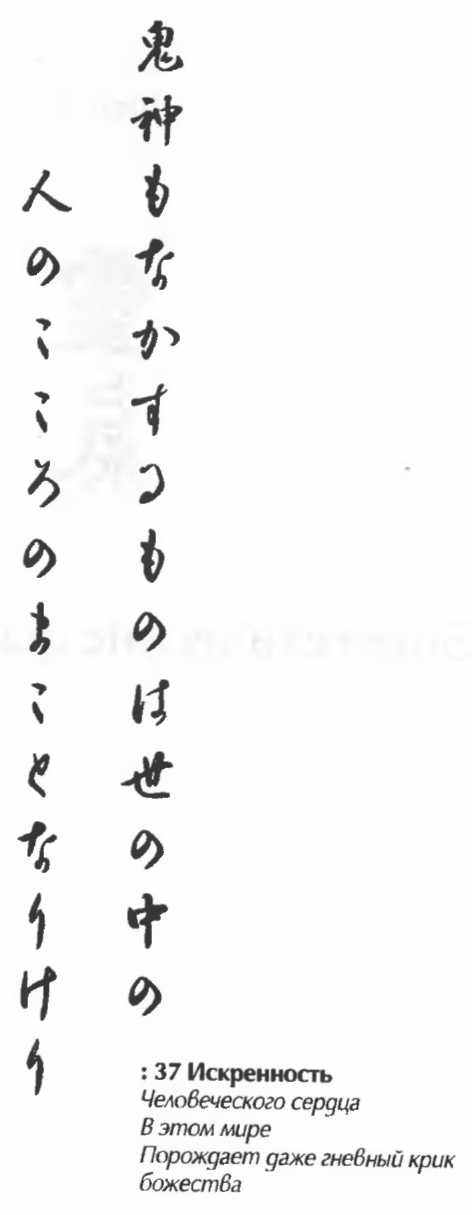 鬼神もなかするものは世の中の
人のこころのまことなりけり
: 37 Искренность
Человеческого сердца
В этом мире
Порождает даже гневный крик
божества